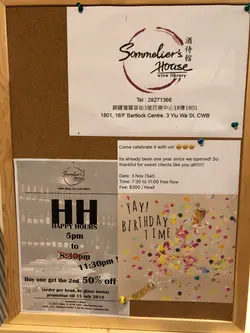 Sommelier's
House
酒侍館
wine library
Tel : 28271366
銅鑼灣耀華街3號百樂中心18樓1801
1801, 18/F Bartlock Centre, 3 Yiu Wa St, CWB
Come celebrate it with us! 😄😄😄
Its already been one year since we opened! So
thankful for sweet clients like you all!!!!!!
Date: 3 Nov (Sat)
Time: 7:30 to 11:00 free flow
Fee: $300 / head
HH
HAPPY HOURS
5pm
to
8:30pm
11:30pm !
Buy one get the 2nd 50% off
(order per head, by glass menu)
promotion till 15 July 2018
YAY!
BIRTHDAY
TIME